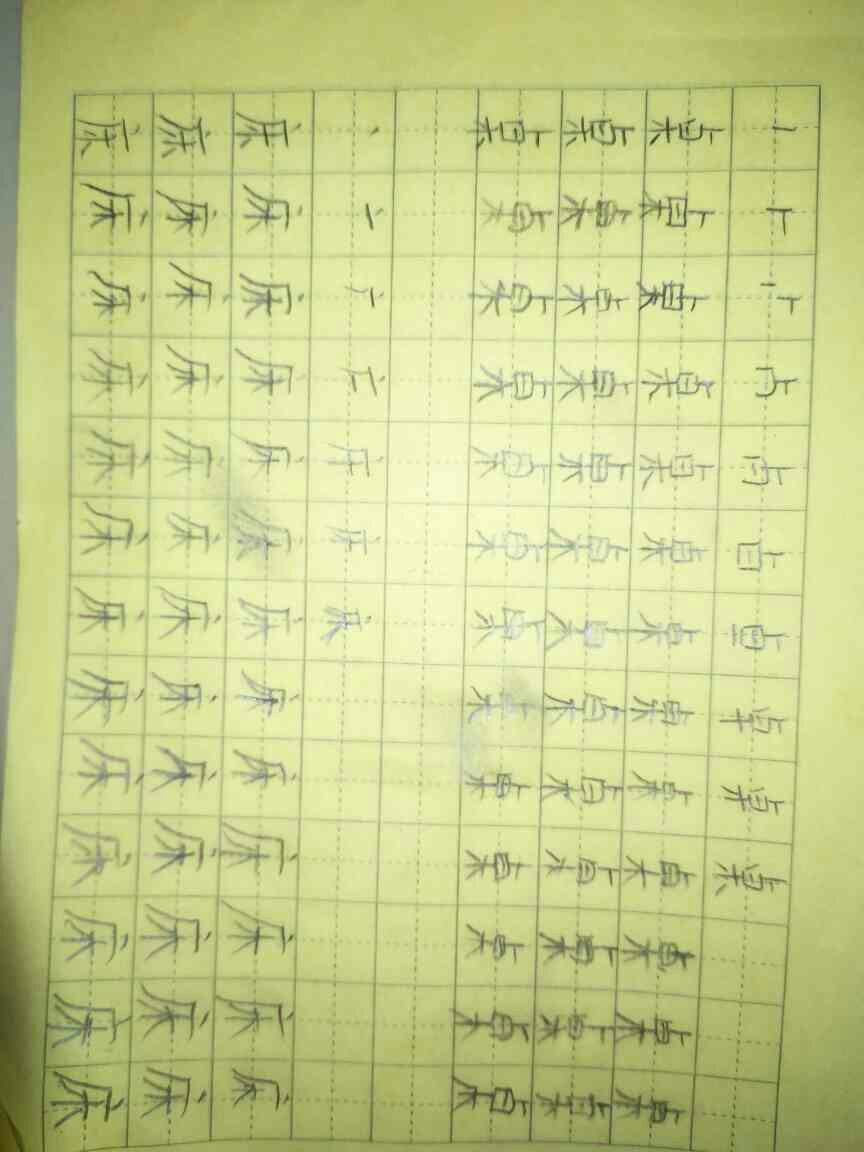 丨 ⺊ 桌
桌 桌 桌 桌 桌 桌 桌 桌 桌 桌 桌 桌 桌
桌 桌 桌 桌 桌 桌 桌 桌 桌 桌 桌 桌 桌
桌 桌 桌 桌 桌 桌 桌 桌 桌 桌 桌 桌 桌
丶 亠 广 床
床 床 床 床 床 床 床 床 床 床 床 床 床
床 床 床 床 床 床 床 床 床 床 床 床 床
床 床 床 床 床 床 床 床 床 床 床 床 床